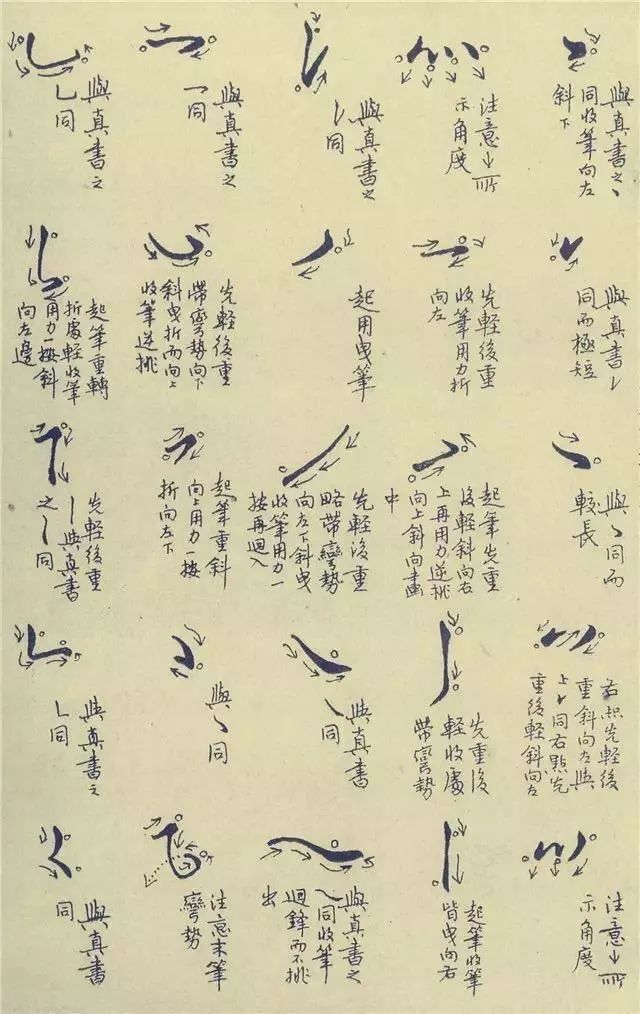 與真書之丶
同收筆向左
斜下
與真書㇀
同而極短
與丶同而
較長
右點先輕後
重斜向左與
上丶同右點先
重後輕斜向左
注意↓所
示角度
注意↓所
示角度
先輕後重
收筆用力折
向左
起筆先重
後輕斜向右
上再用力逆挑
向上斜向畫
中
先重後
輕收處
帶彎勢
起筆收筆
皆曳向右
與真書之
丿同
起用曳筆
先輕後重
略帶彎勢
向左下斜曳
收筆用力一
按再迴入
與真書
㇏同
與真書之
㇏同收筆
迴鋒而不挑
出
與真書之
㇖同
先輕後重
帶彎勢向下
斜曳折而向上
收筆逆挑
起筆重斜
向上用力一按
折向左下
與丶同
注意末筆
彎勢
與真書之
乚同
起筆重轉
折處輕收筆
用力一按斜
向左邊
先輕後重
丨與真書
之丨同
與真書之
㇄同
與真書
同